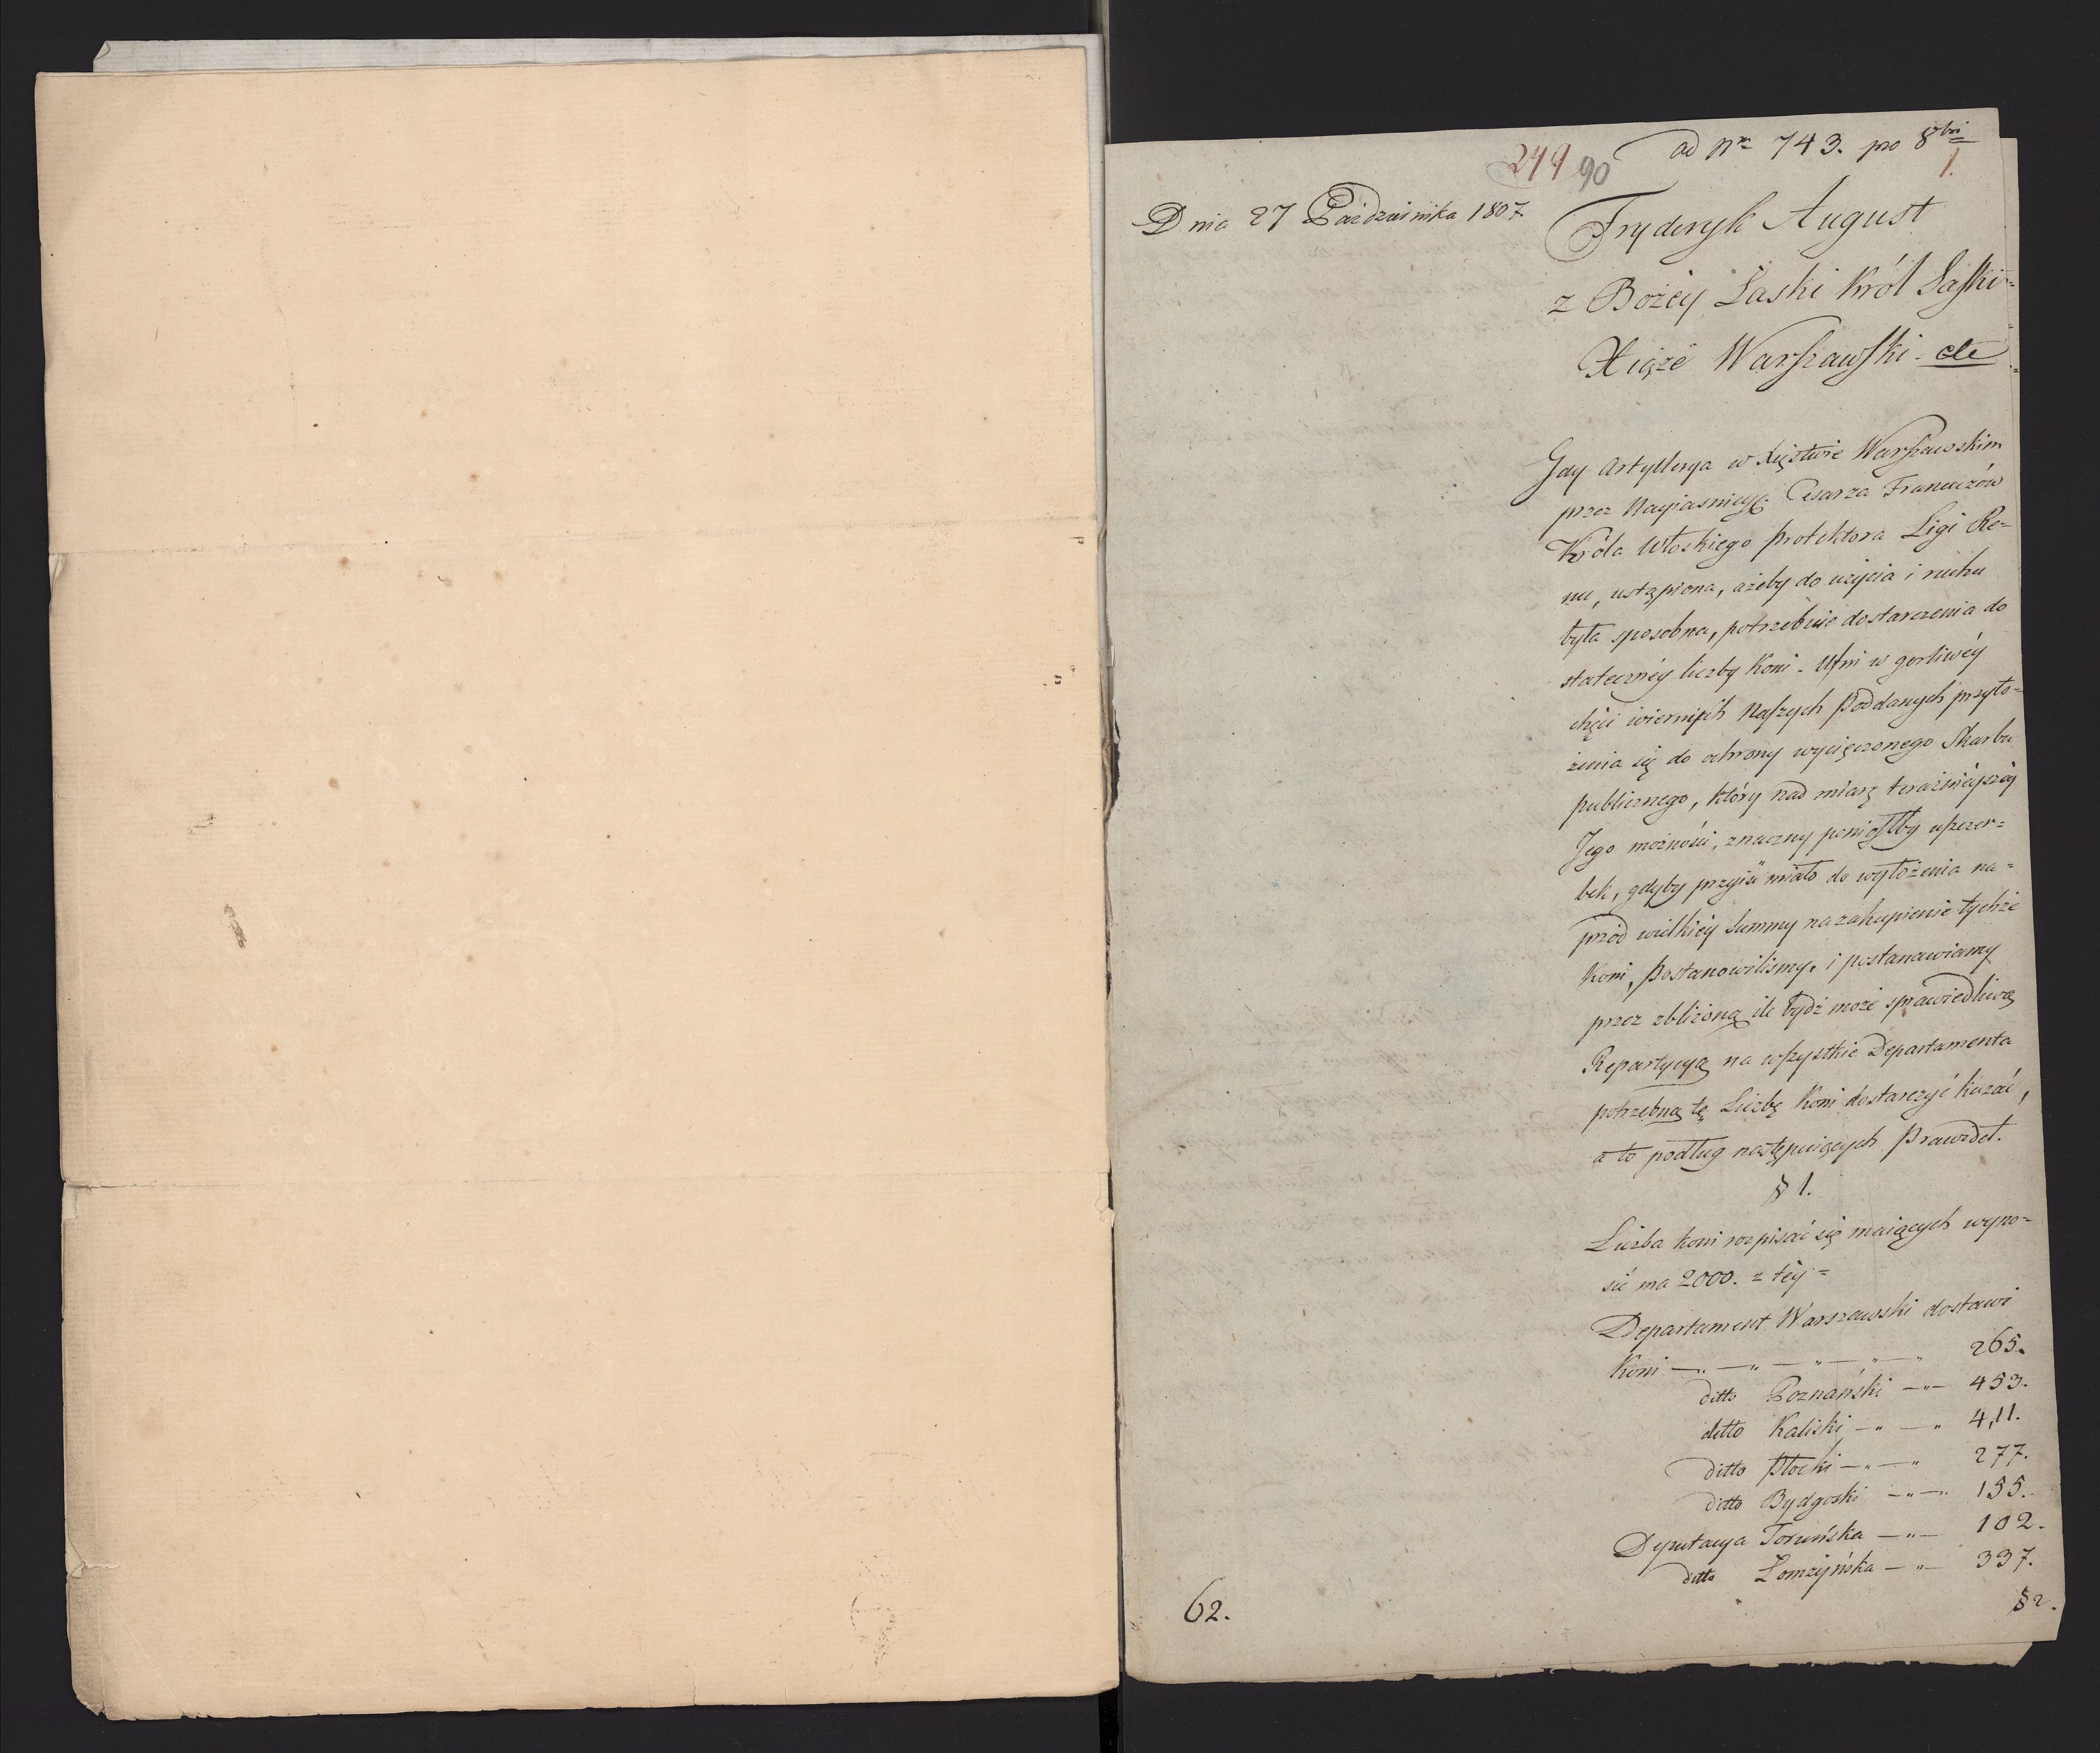 ad Nr 743. pro 8bri
249 90
1.
Dnia 27 Października 1807.
Fryderyk August
z Bożey Łaski Król Saski
Xiąże Warszawski. etc
Gdy Artyllerya w Xięstwie Warszawskim
przez Nayiasnieyß: Cesarza Francuzów
Króla Włoskiego Protektora Ligi Re=
nu, ustąpiona, ażeby do użycia i ruchu
była sposobna, potrzebuie dostarczenia do
stateczney liczby Koni. Ufni w gorliwéy
chęci wiernych Naszych Poddanych przyło=
żenia się do ochrony wycięczonego Skarbu
publicznego, który nad miarę teraźnieyszéy
Jego możności, znaczny poniosłby uszczer=
bek, gdyby przyiść miało do wyłożenia na=
przód wielkiéy Summy na zakupienie tychże
Koni, Postanowilismy, i postanawiamy
przez zbliżoną ile bydź może sprawiedliwą
Repartycyą na wszystkie Departamenta
potrzebną tę Liczbę Koni dostarczyć kazać,
a to podług następuiących Prawideł.
§ 1.
Liczba koni rozpisać się maiących wyno=
sić ma 2000. z téy =
Departament Warszawski dostawi
Koni — " — " — " — " — " 265.
ditto Poznański — " — 453.
ditto Kaliski — " — " 411.
ditto Płocki — " — " 277.
ditto Bydgoski — " — " 155.
Deputacya Toruńska — " — 102.
ditto Łomżyńska — " — 337.
62.
§ 2.